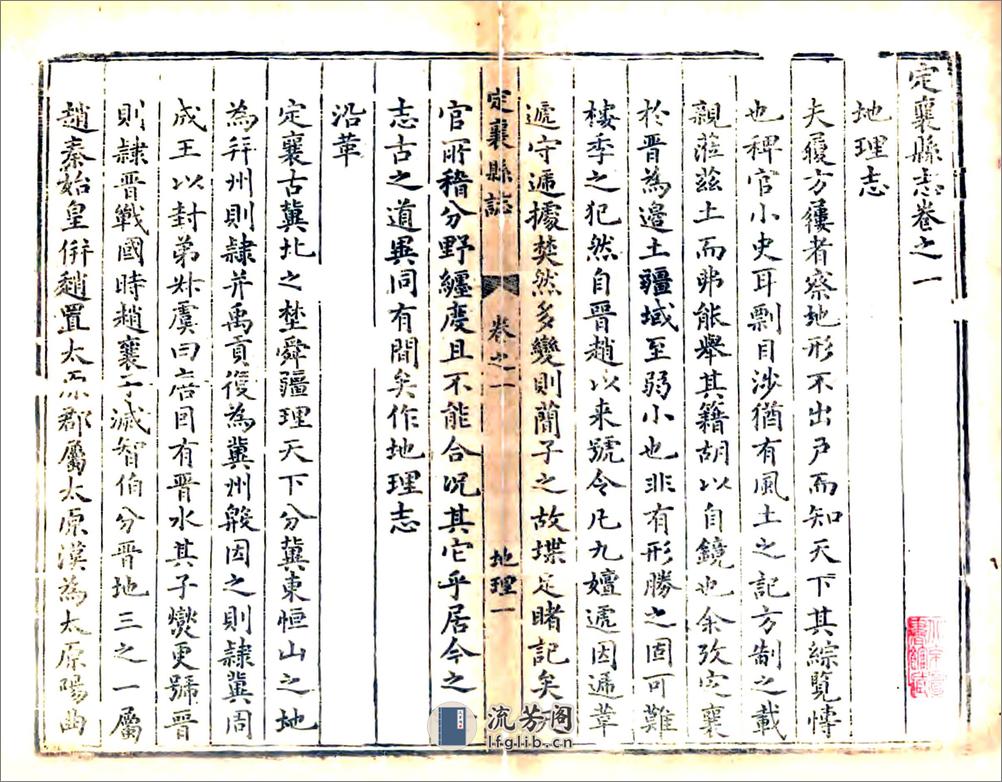 定襄縣志卷之一
地理志
夫履方屨者察地形不出戶而知天下其綜覽愽
也稗官小史耳剽目涉猶有風土之記方制之載
親蒞茲土而弗能舉其籍胡以自鏡也余攷定襄
於晉為邊土疆域至弱小也非有形勝之固可難
樓季之犯然自晉趙以来號令凢九嬗遞因遞革
遞守遞據焚然多變則蕳子之故堞足睹記矣
定襄縣誌
卷之一
地理一
官所稽分野纏度且不能合况其它乎居今之
志古之道異同有間矣作地理志
沿革
定襄古冀北之埜舜疆理天下分冀東恒山之地
為并州則隷并禹貢復為冀州殷因之則隷冀周
成王以封弟叔虞曰唐囙有晉水其子爕更號晉
則隷晉戰國時趙襄子滅智伯分晉地三之一屬
趙秦始皇併趙置太原郡屬太原漢為太原陽曲
流芳阁
lfglib.cn